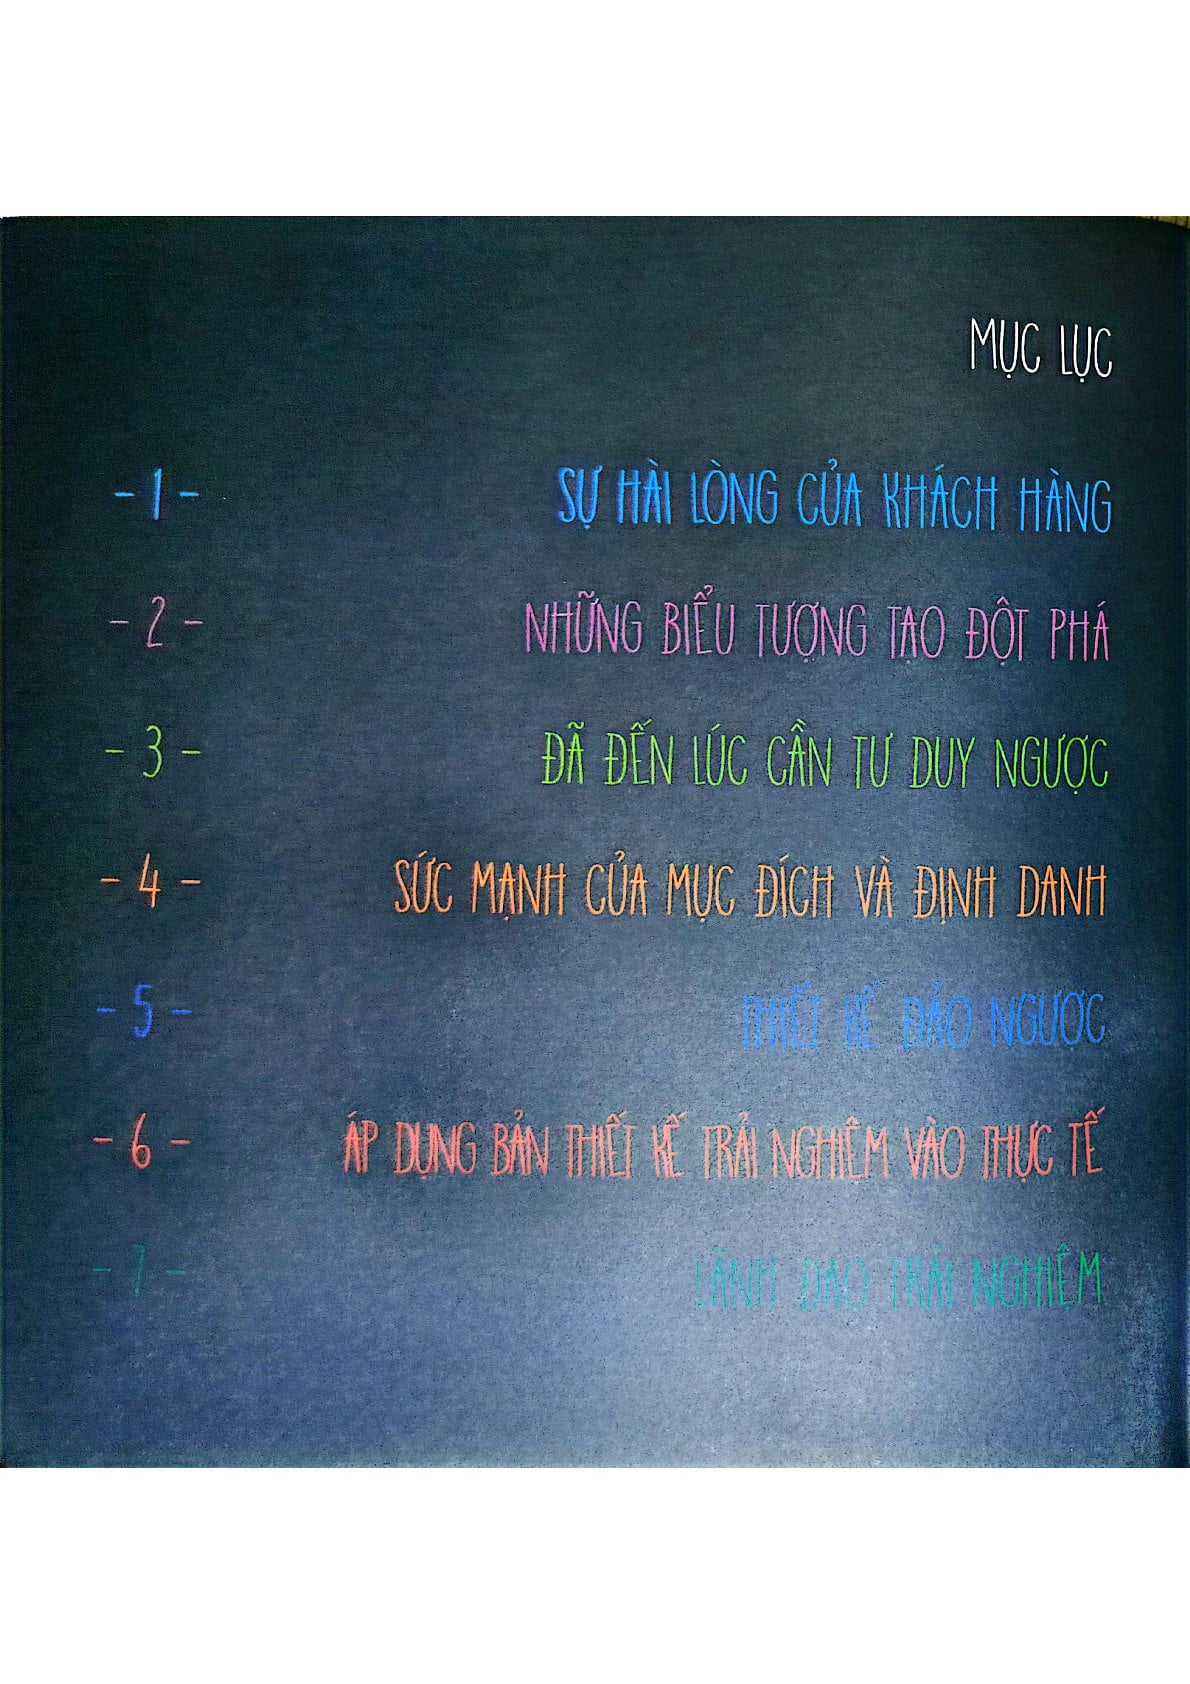 MỤC LỤC
- 1 - SỰ HÀI LÒNG CỦA KHÁCH HÀNG
- 2 - NHỮNG BIỂU TƯỢNG TẠO ĐỘT PHÁ
- 3 - ĐÃ ĐẾN LÚC CẦN TƯ DUY NGƯỢC
- 4 - SỨC MẠNH CỦA MỤC ĐÍCH VÀ ĐỊNH DANH
- 5 - THIẾT KẾ ĐẢO NGƯỢC
- 6 - ÁP DỤNG BẢN THIẾT KẾ TRẢI NGHIỆM VÀO THỰC TẾ
- 7 - LÃNH ĐẠO TRẢI NGHIỆM